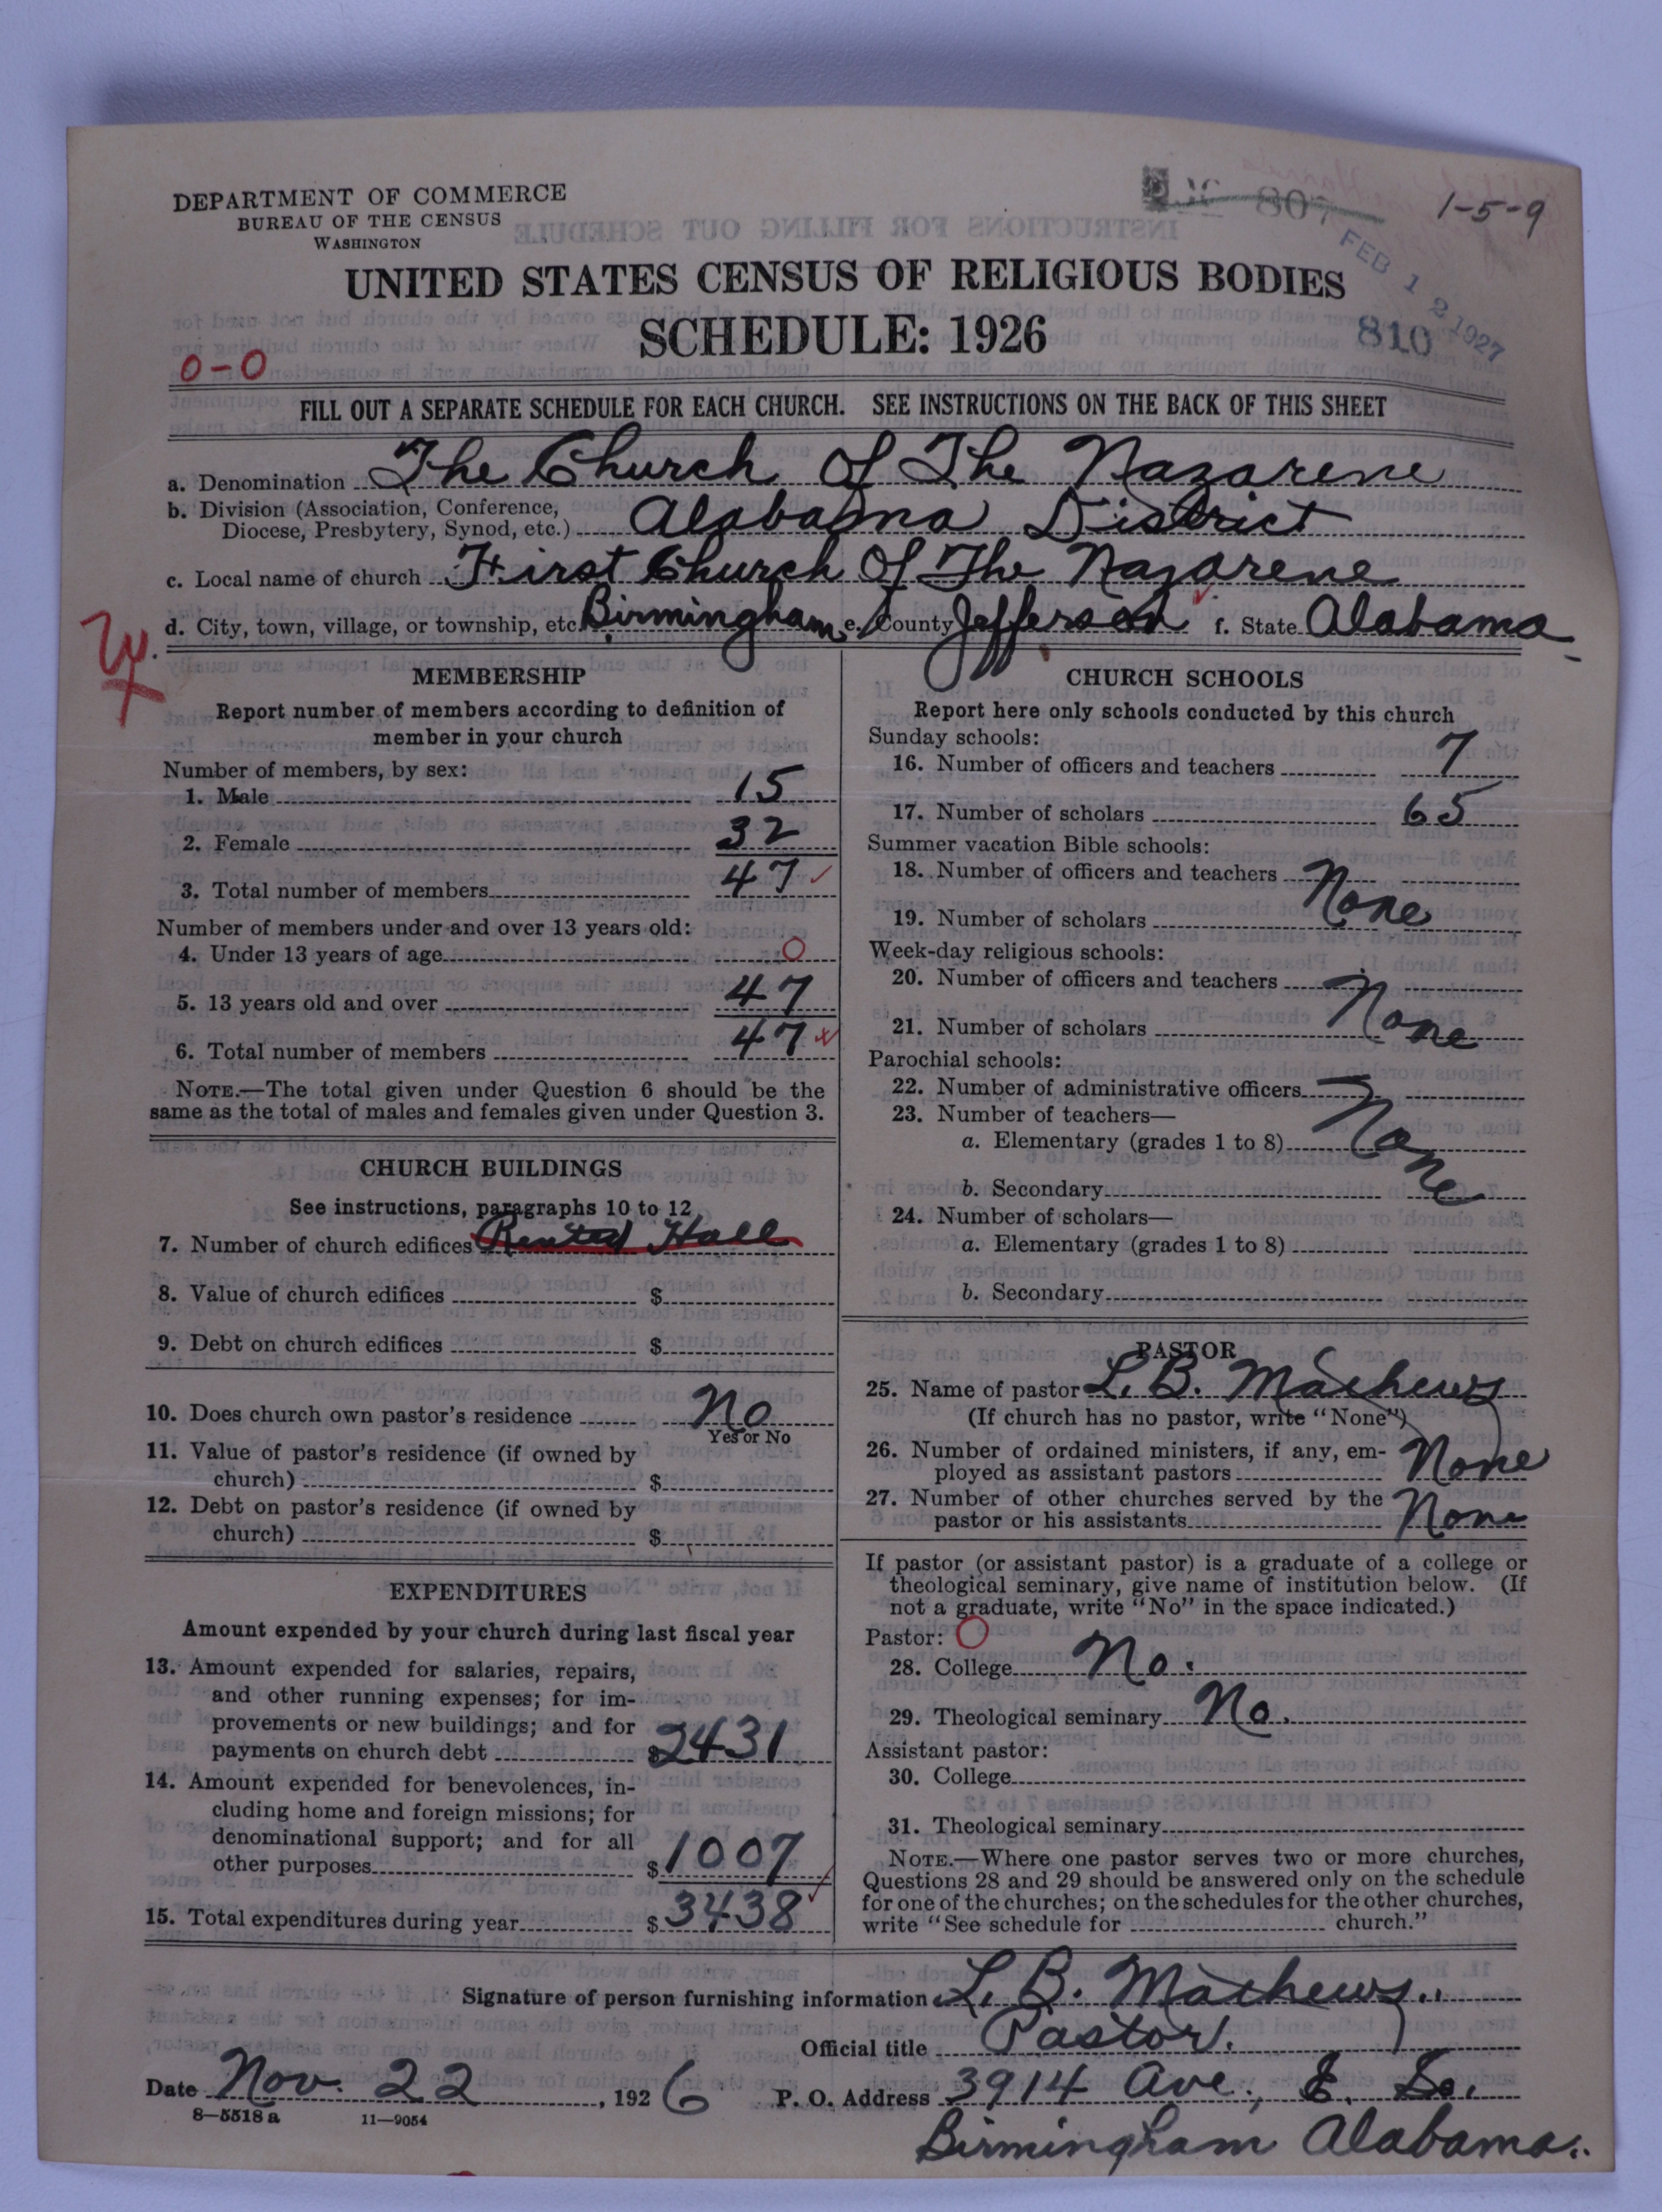 DEPARTMENT OF COMMERCE
BUREAU OF THE CENSUS
WASHINGTON
807
1-5-9
FEB 12 1927
UNITED STATES CENSUS OF RELIGIOUS BODIES
SCHEDULE: 1926
810
0-0
FILL OUT A SEPARATE SCHEDULE FOR EACH CHURCH. SEE INSTRUCTIONS ON THE BACK OF THIS SHEET
a. Denomination The Church Of The Nazarene
b. Division (Association, Conference,
Diocese, Presbytery, Synod, etc.) Alabama District
c. Local name of church First Church Of The Nazarene
d. City, town, village, or township, etc. Birmingham e. County Jefferson f. State Alabama
MEMBERSHIP
Report number of members according to definition of
member in your church
Number of members, by sex:
1. Male 15
2. Female 32
3. Total number of members 47
Number of members under and over 13 years old:
4. Under 13 years of age 0
5. 13 years old and over 47
6. Total number of members 47
NOTE.—The total given under Question 6 should be the
same as the total of males and females given under Question 3.
CHURCH BUILDINGS
See instructions, paragraphs 10 to 12
7. Number of church edifices Rented Hall
8. Value of church edifices $
9. Debt on church edifices $
10. Does church own pastor's residence No
Yes or No
11. Value of pastor's residence (if owned by
church) $
12. Debt on pastor's residence (if owned by
church) $
EXPENDITURES
Amount expended by your church during last fiscal year
13. Amount expended for salaries, repairs,
and other running expenses; for im-
provements or new buildings; and for
payments on church debt $2431
14. Amount expended for benevolences, in-
cluding home and foreign missions; for
denominational support; and for all
other purposes $1007
15. Total expenditures during year $3438
CHURCH SCHOOLS
Report here only schools conducted by this church
Sunday schools:
16. Number of officers and teachers 7
17. Number of scholars 65
Summer vacation Bible schools:
18. Number of officers and teachers None
19. Number of scholars
Week-day religious schools:
20. Number of officers and teachers None
21. Number of scholars
Parochial schools:
22. Number of administrative officers None
23. Number of teachers—
a. Elementary (grades 1 to 8)
b. Secondary
24. Number of scholars—
a. Elementary (grades 1 to 8)
b. Secondary
PASTOR
25. Name of pastor L. B. Mathews
(If church has no pastor, write "None")
26. Number of ordained ministers, if any, em-
ployed as assistant pastors None
27. Number of other churches served by the
pastor or his assistants None
If pastor (or assistant pastor) is a graduate of a college or
theological seminary, give name of institution below. (If
not a graduate, write "No" in the space indicated.)
Pastor: 0
28. College No.
29. Theological seminary No.
Assistant pastor:
30. College
31. Theological seminary
NOTE.—Where one pastor serves two or more churches,
Questions 28 and 29 should be answered only on the schedule
for one of the churches; on the schedules for the other churches,
write "See schedule for church."
Signature of person furnishing information L. B. Mathews.
Official title Pastor.
Date Nov. 22, 1926 P. O. Address 3914 Ave. E. So.
8—5518 a 11—9054
Birmingham Alabama.